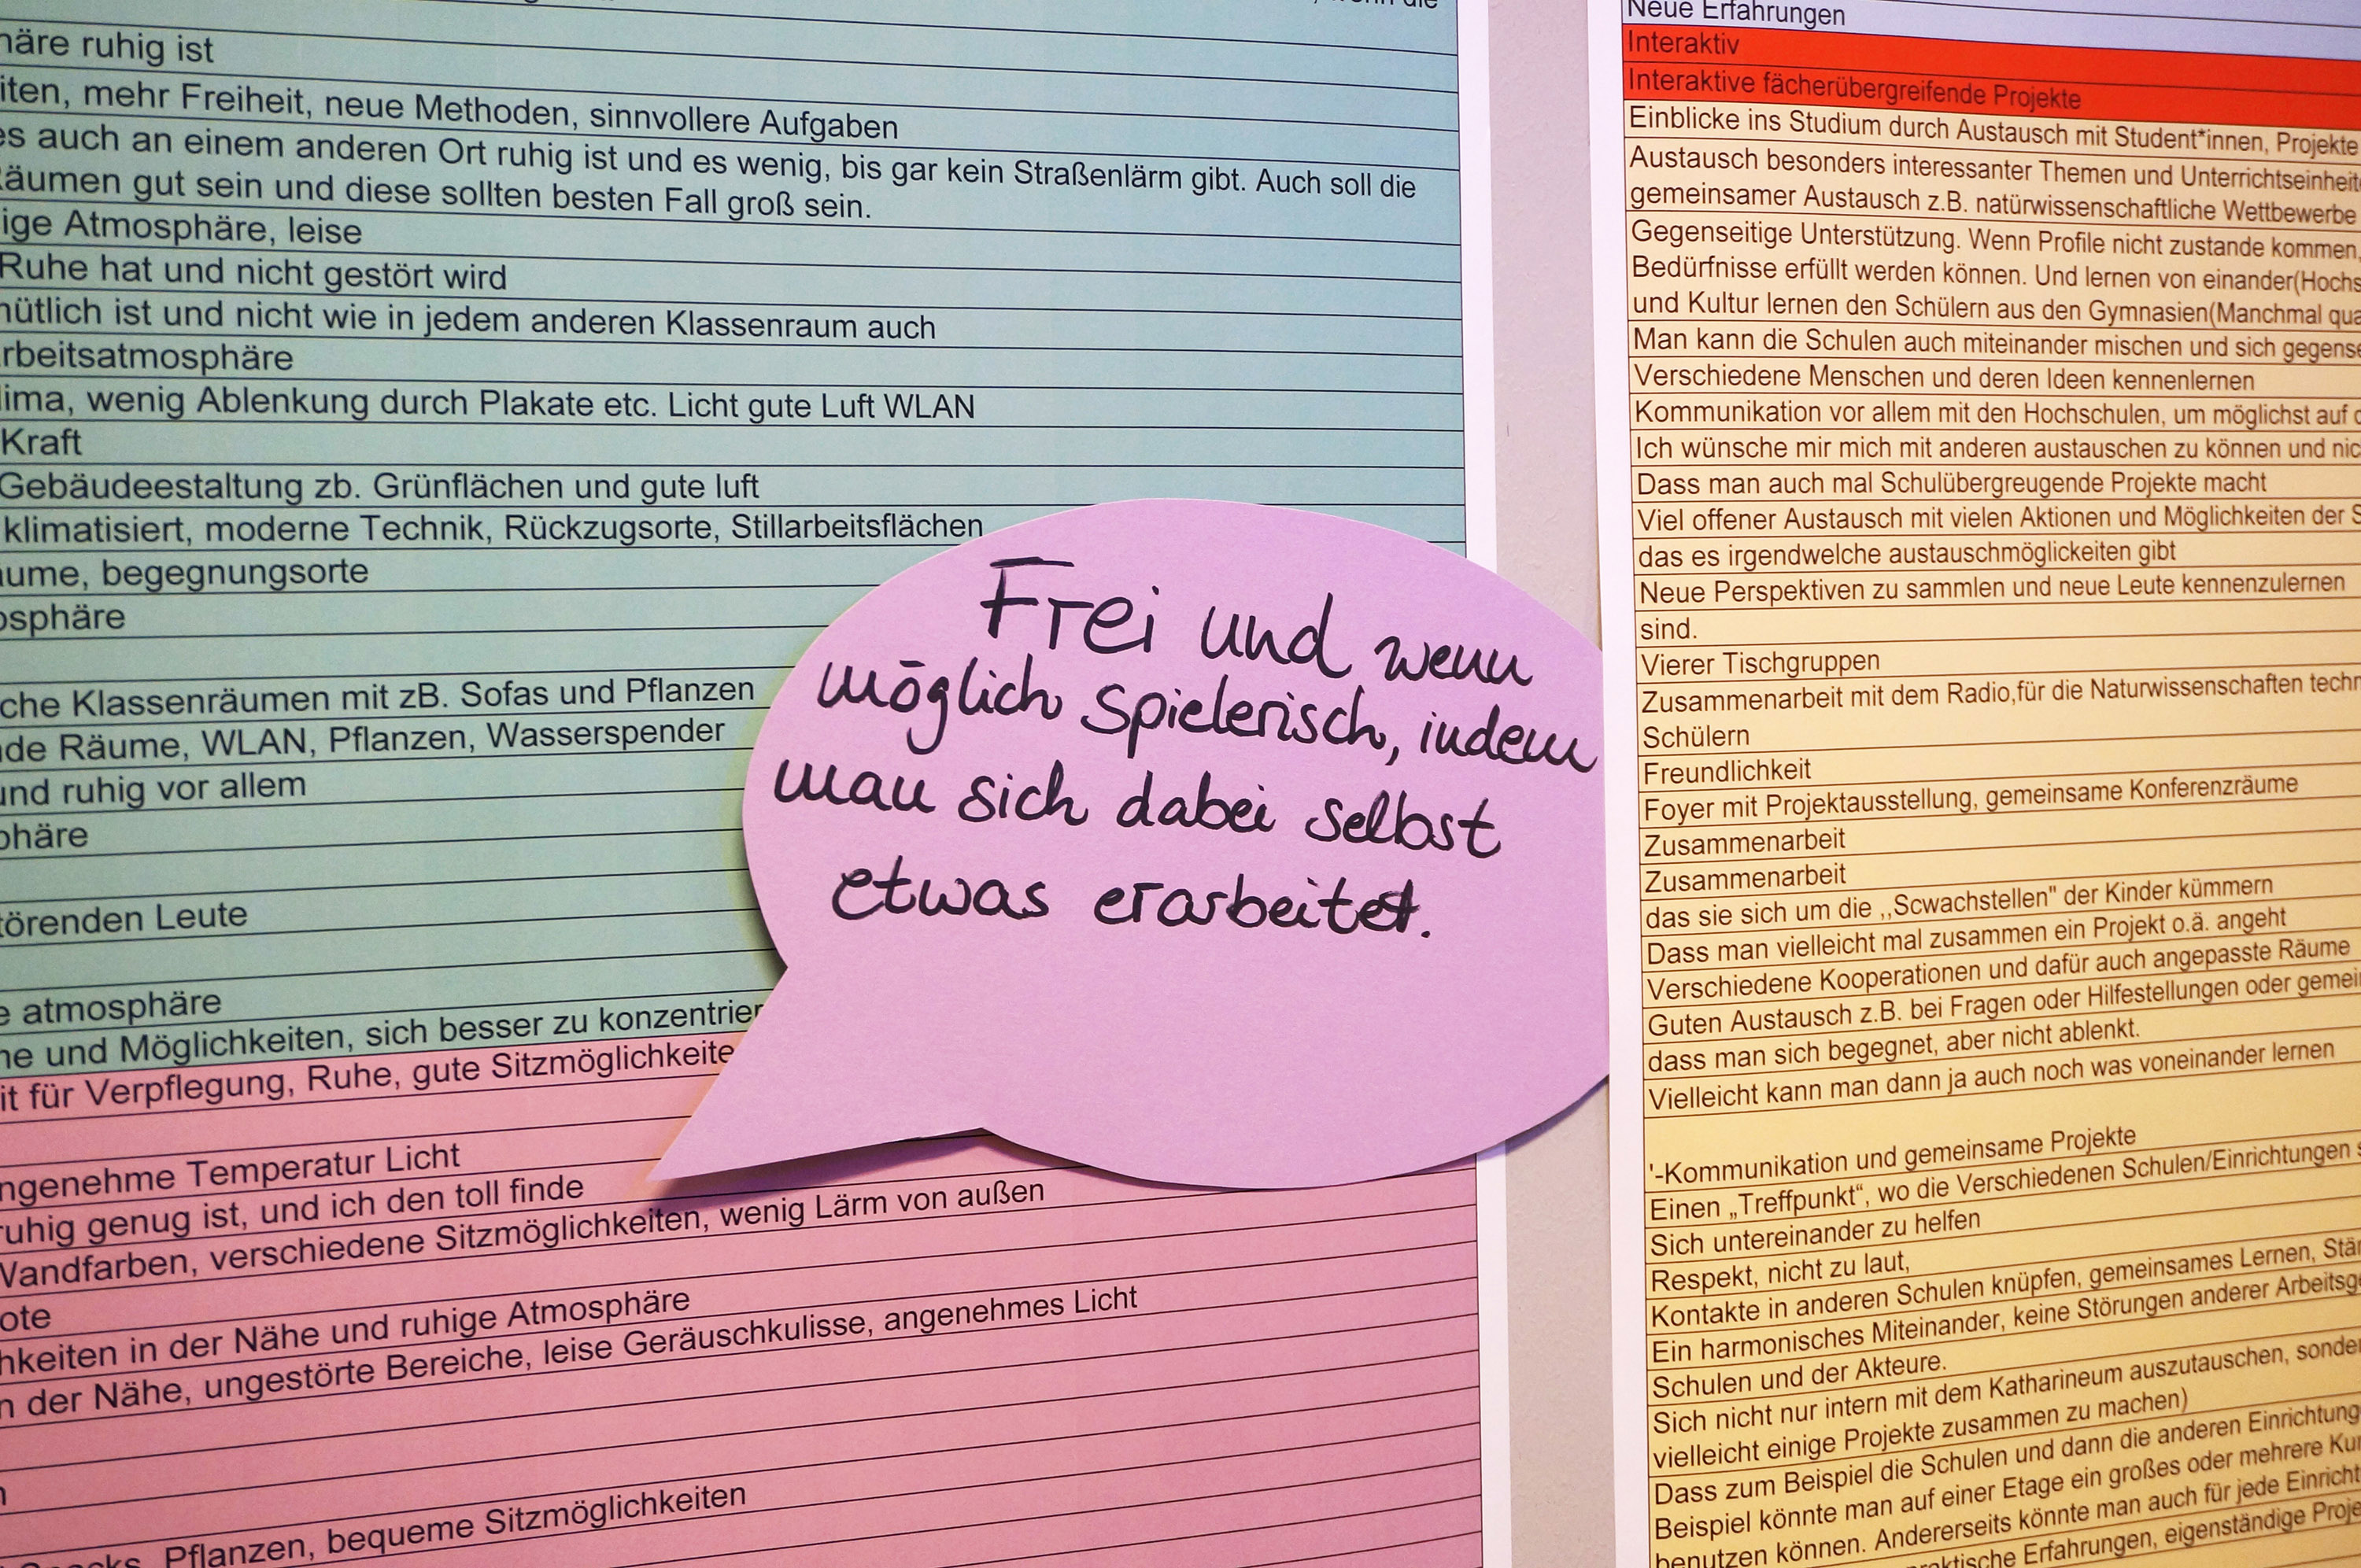 häre ruhig ist
iten, mehr Freiheit, neue Methoden, sinnvollere Aufgaben
es auch an einem anderen Ort ruhig ist und es wenig, bis gar kein Straßenlärm gibt. Auch soll die
Räumen gut sein und diese sollten besten Fall groß sein.
ige Atmosphäre, leise
Ruhe hat und nicht gestört wird
mütlich ist und nicht wie in jedem anderen Klassenraum auch
rbeitsatmosphäre
lima, wenig Ablenkung durch Plakate etc. Licht gute Luft WLAN
Kraft
Gebäudeestaltung zb. Grünflächen und gute luft
klimatisiert, moderne Technik, Rückzugsorte, Stillarbeitsflächen
äume, begegnungsorte
osphäre
che Klassenräumen mit zB. Sofas und Pflanzen
de Räume, WLAN, Pflanzen, Wasserspender
und ruhig vor allem
phäre
törenden Leute
e atmosphäre
ne und Möglichkeiten, sich besser zu konzentrier
it für Verpflegung, Ruhe, gute Sitzmöglichkeite
ngenehme Temperatur Licht
ruhig genug ist, und ich den toll finde
Wandfarben, verschiedene Sitzmöglichkeiten, wenig Lärm von außen
ote
hkeiten in der Nähe und ruhige Atmosphäre
n der Nähe, ungestörte Bereiche, leise Geräuschkulisse, angenehmes Licht
Pflanzen, bequeme Sitzmöglichkeiten
Frei und wenn
möglich spielerisch, indem
man sich dabei selbst
etwas erarbeitet.
Neue Erfahrungen
Interaktiv
Interaktive fächerübergreifende Projekte
Einblicke ins Studium durch Austausch mit Student*innen, Projekte
Austausch besonders interessanter Themen und Unterrichtseinheit
gemeinsamer Austausch z.B. natürwissenschaftliche Wettbewerbe
Gegenseitige Unterstützung. Wenn Profile nicht zustande kommen,
Bedürfnisse erfüllt werden können. Und lernen von einander(Hochs
und Kultur lernen den Schülern aus den Gymnasien(Manchmal qua
Man kann die Schulen auch miteinander mischen und sich gegense
Verschiedene Menschen und deren Ideen kennenlernen
Kommunikation vor allem mit den Hochschulen, um möglichst auf d
Ich wünsche mir mich mit anderen austauschen zu können und nic
Dass man auch mal Schulübergreugende Projekte macht
Viel offener Austausch mit vielen Aktionen und Möglichkeiten der S
das es irgendwelche austauschmöglickeiten gibt
Neue Perspektiven zu sammlen und neue Leute kennenzulernen
sind.
Vierer Tischgruppen
Zusammenarbeit mit dem Radio,für die Naturwissenschaften techn
Schülern
Freundlichkeit
Foyer mit Projektausstellung, gemeinsame Konferenzräume
Zusammenarbeit
Zusammenarbeit
das sie sich um die ,,Scwachstellen" der Kinder kümmern
Dass man vielleicht mal zusammen ein Projekt o.ä. angeht
Verschiedene Kooperationen und dafür auch angepasste Räume
Guten Austausch z.B. bei Fragen oder Hilfestellungen oder gemei
dass man sich begegnet, aber nicht ablenkt.
Vielleicht kann man dann ja auch noch was voneinander lernen
'-Kommunikation und gemeinsame Projekte
Einen „Treffpunkt“, wo die Verschiedenen Schulen/Einrichtungen s
Sich untereinander zu helfen
Respekt, nicht zu laut,
Kontakte in anderen Schulen knüpfen, gemeinsames Lernen, Stär
Ein harmonisches Miteinander, keine Störungen anderer Arbeitsge
Schulen und der Akteure.
Sich nicht nur intern mit dem Katharineum auszutauschen, sonder
vielleicht einige Projekte zusammen zu machen)
Dass zum Beispiel die Schulen und dann die anderen Einrichtung
Beispiel könnte man auf einer Etage ein großes oder mehrere Kur
benutzen können. Andererseits könnte man auch für jede Einricht
aktische Erfahrungen, eigenständige Proje